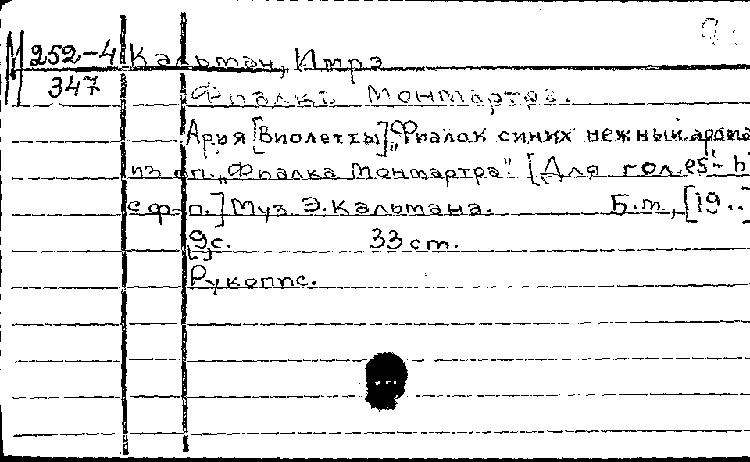 М 252-4 Кальман, Имрэ
347 Фиалка Монмартра.
Ария [Виолетты] „Фиалок синих нежный арома
из оп. „Фиалка Монмартра" [Для гол. es¹-h
с ф-п.] Муз. Э. Кальмана. Б.м., [19..
[9]с. 33 см.
Рукопис.